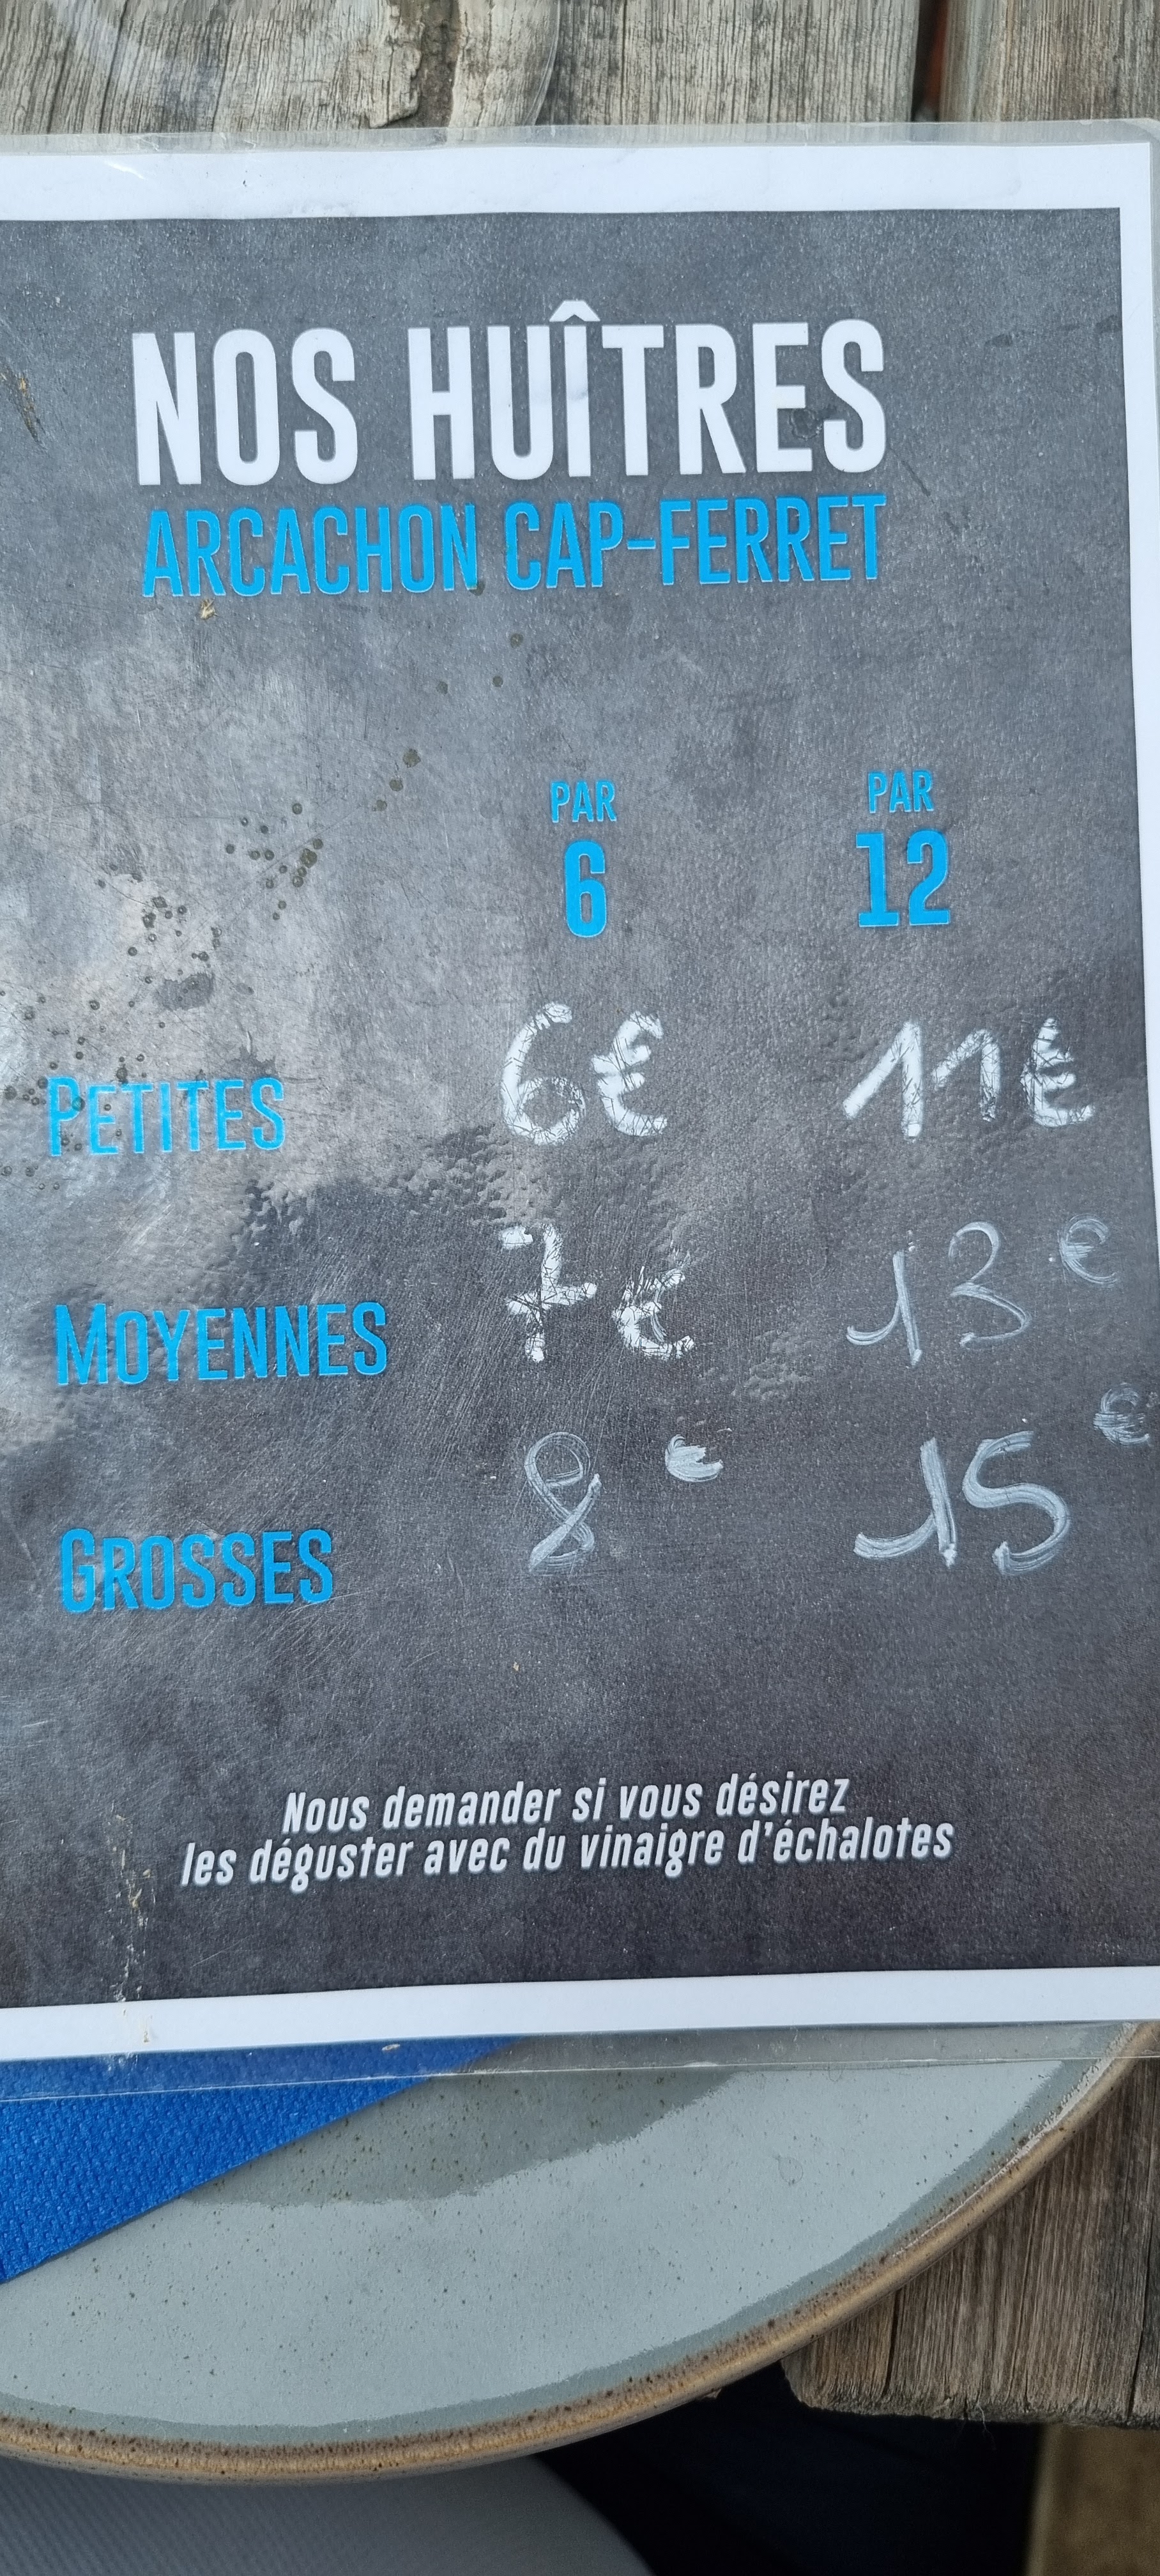 NOS HUÎTRES
ARCACHON CAP-FERRET
PAR PAR
6 12
PETITES 6€ 11€
MOYENNES 7€ 13€
GROSSES 8€ 15€
Nous demander si vous désirez
les déguster avec du vinaigre d'échalotes